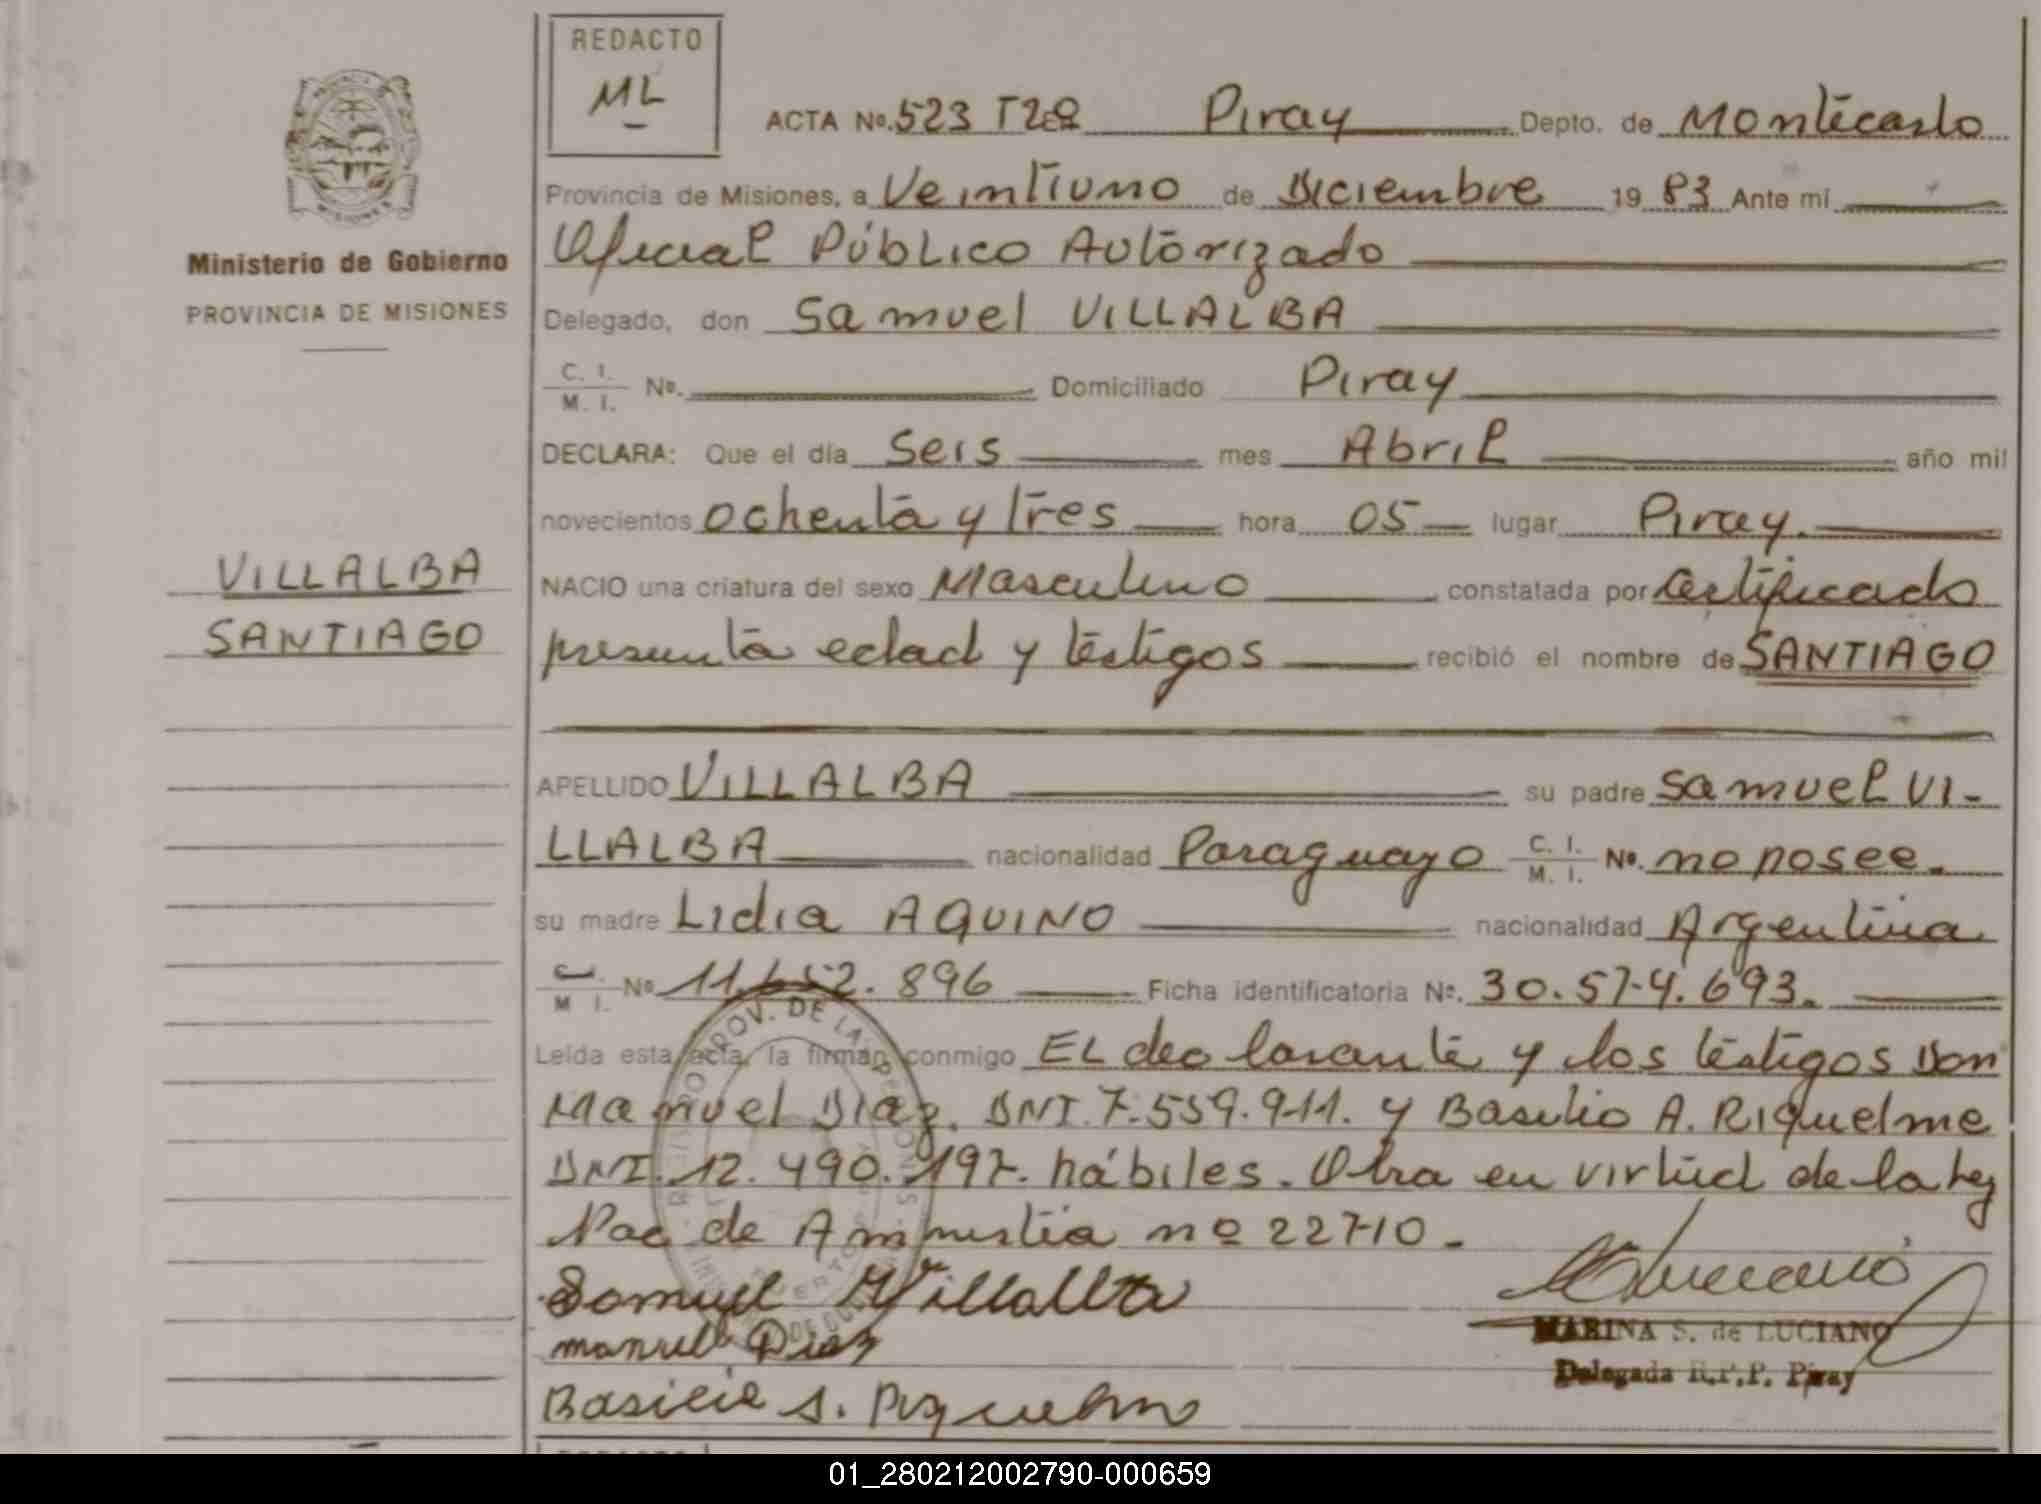 REDACTO
ML
ACTA Nº. 523 T2º Piray Depto. de Montecarlo
Provincia de Misiones, a Veintiuno de Diciembre 19 83 Ante mí
Oficial Público Autorizado
Delegado, don Samuel VILLALBA
C. I.
M. I. Nº. Domiciliado Piray
DECLARA: Que el día Seis mes Abril año mil
novecientos ochenta y tres hora 05 lugar Piray.
NACIO una criatura del sexo Masculino constatada por Certificado
presunta edad y testigos recibió el nombre de SANTIAGO
APELLIDO VILLALBA su padre Samuel VI-
LLALBA nacionalidad Paraguayo C. I. M. I. Nº. no posee.
su madre Lidia AQUINO nacionalidad Argentina
M I. Nº 11.652.896 Ficha identificatoria Nº. 30.574.693.
Leída esta acta, la firman conmigo EL declarante y los testigos Don
Manuel Diaz. DNI.7.559.911. y Basilio A. Riquelme
DNI.12.490.197. hábiles. Otra en virtud de la Ley
Nac de Amnistia nº 22710.
Samuel Villalba
manuel Diaz
MARINA S. de LUCIANO
Delegada R.P.P. Piray
Ministerio de Gobierno
PROVINCIA DE MISIONES
VILLALBA
SANTIAGO
01_280212002790-000659